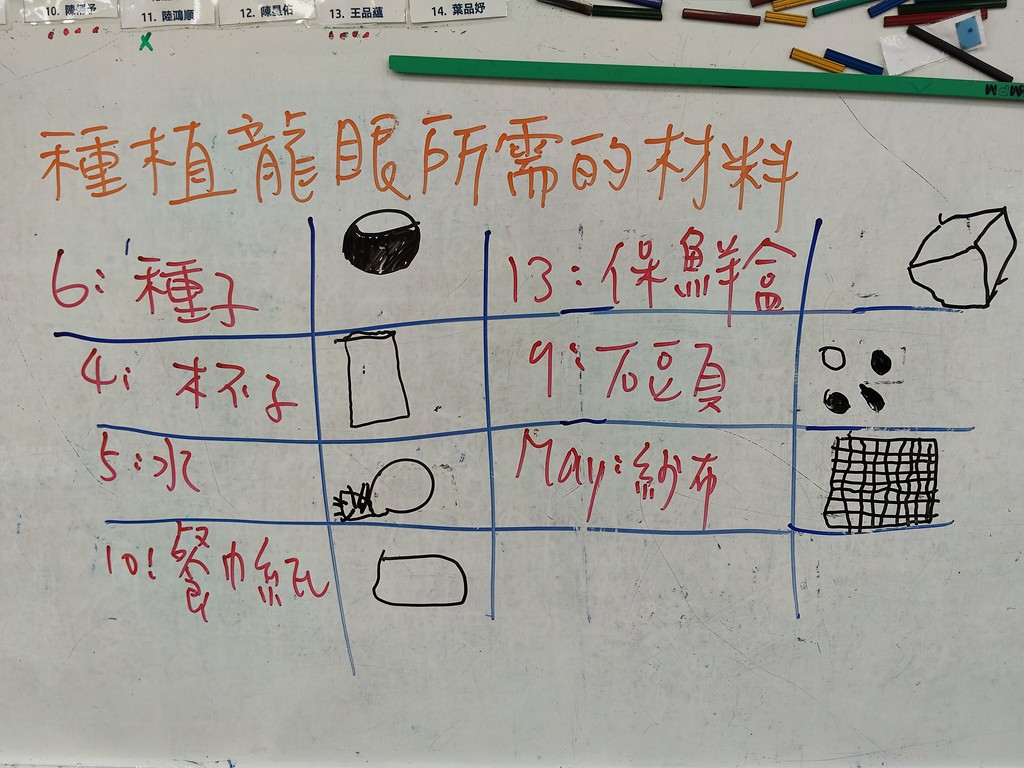 11. 陸鴻順
13. 王品蘊
14. 葉品妤
MPM
種植龍眼所需的材料
6: 種子
13: 保鮮盒
4: 杯子
9: 石頭
5: 水
May: 紗布
10: 餐巾紙